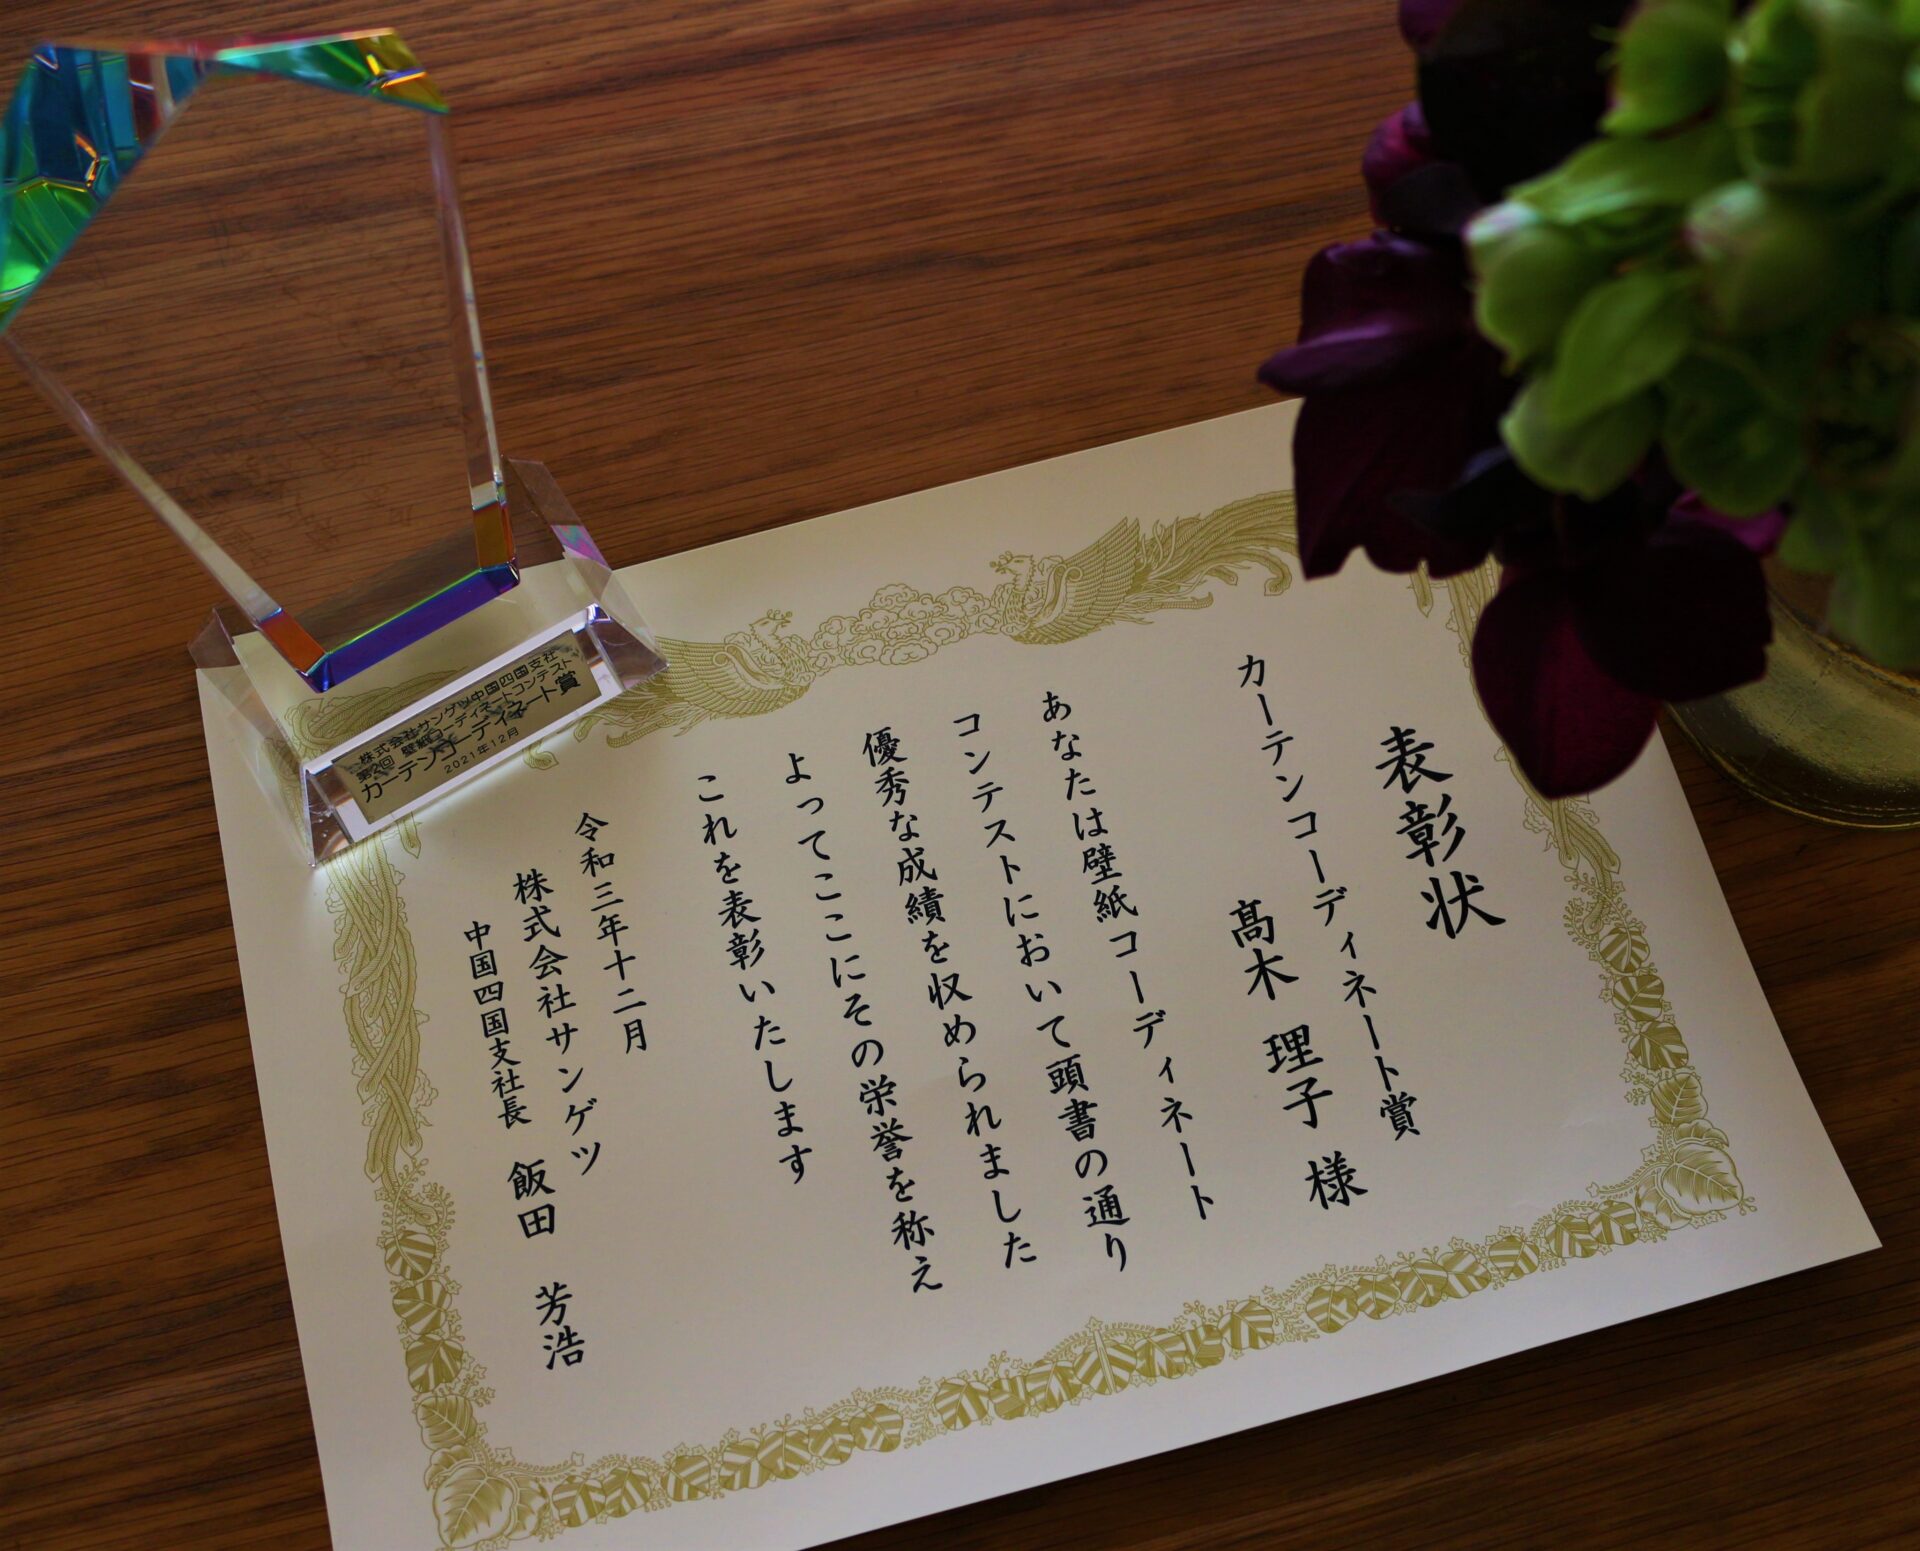 表彰状
カーテンコーディネート賞
髙木 理子 様
あなたは壁紙コーディネート
コンテストにおいて頭書の通り
優秀な成績を収められました
よってここにその栄誉を称え
これを表彰いたします
令和三年十二月
株式会社サンゲツ
中国四国支社長 飯田 芳浩
株式会社サンゲツ中国四国支社
第2回 壁紙コーディネートコンテスト
カーテンコーディネート賞
2021年12月